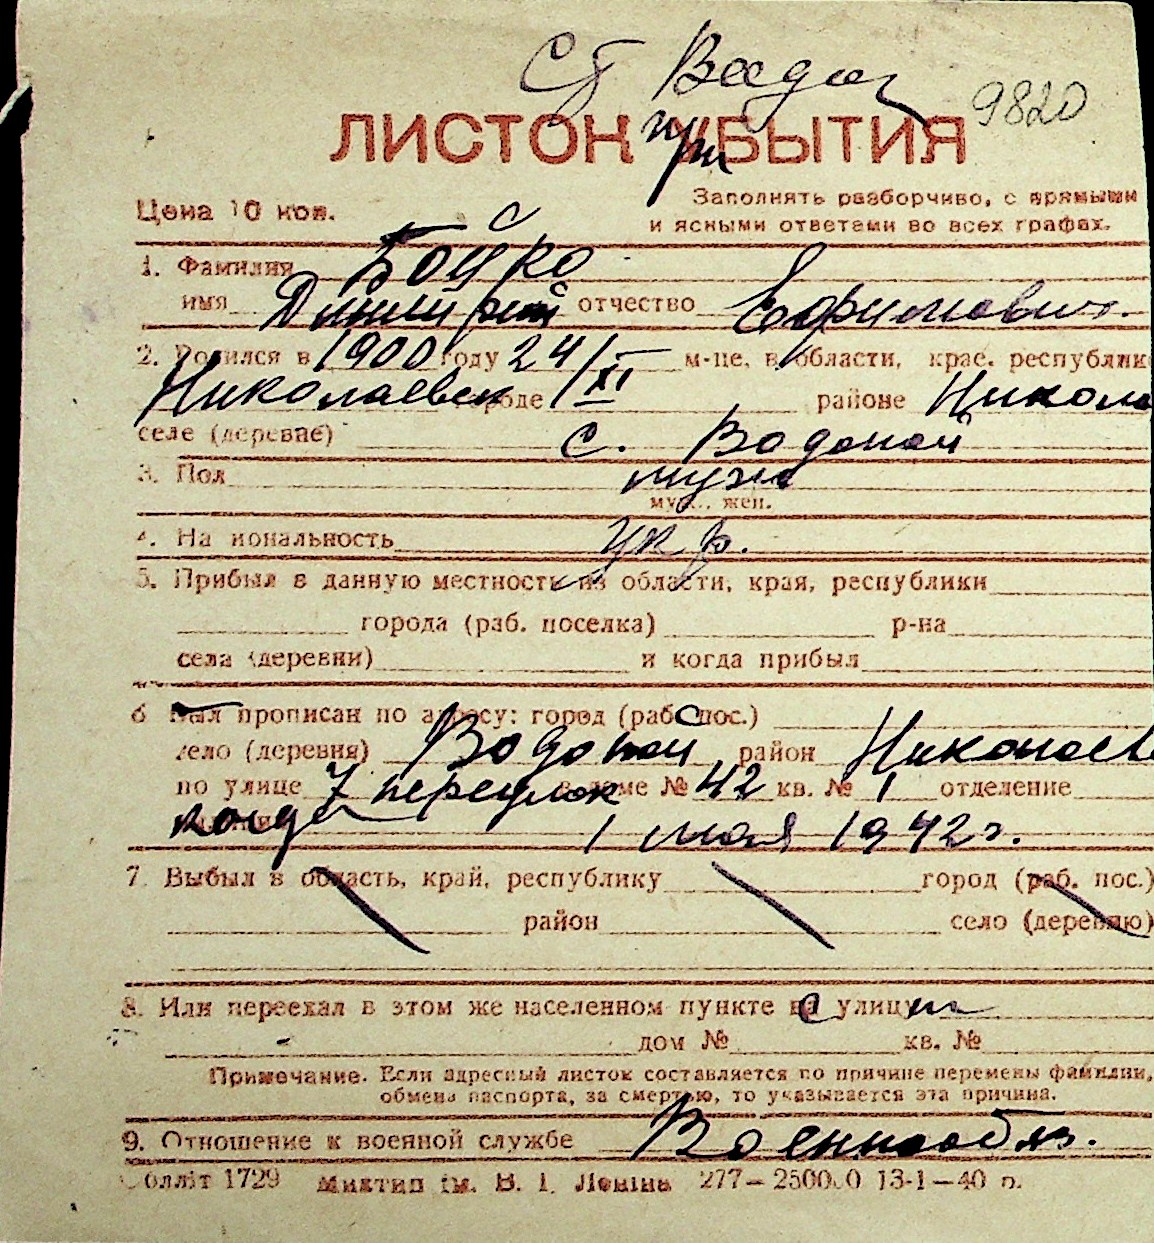 Ст Водоп
9820
ЛИСТОК при УБЫТИЯ
Цена 10 коп.
Заполнять разборчиво, с прямыми
и ясными ответами во всех графах.
1. Фамилия Бойко
имя Дмитрий отчество Ефимович.
2. Родился в 1900 году 24/XI м-це, в области, крае, республик
Николаевск городе районе Никола
селе (деревне) с. Водопой
3. Пол муж
муж., жен.
4. Национальность укр.
5. Прибыл в данную местность из области, края, республики
города (раб. поселка) р-на
села (деревни) и когда прибыл
6 Был прописан по адресу: город (раб. пос.) с
село (деревня) Водопой район Николаев
по улице 7 переулок в доме № 42 кв. № 1 отделение
когда 1 мая 1942 г.
7. Выбыл в область, край, республику город (раб. пос.)
район село (деревню)
8. Или переехал в этом же населенном пункте на улицу
дом № кв. №
Примечание. Если адресный листок составляется по причине перемены фамилии,
обмена паспорта, за смертью, то указывается эта причина.
9. Отношение к военной службе Военнообяз.
Облліт 1729 Миктип ім. В. І. Леніна 277—25000 13-1—40 р.